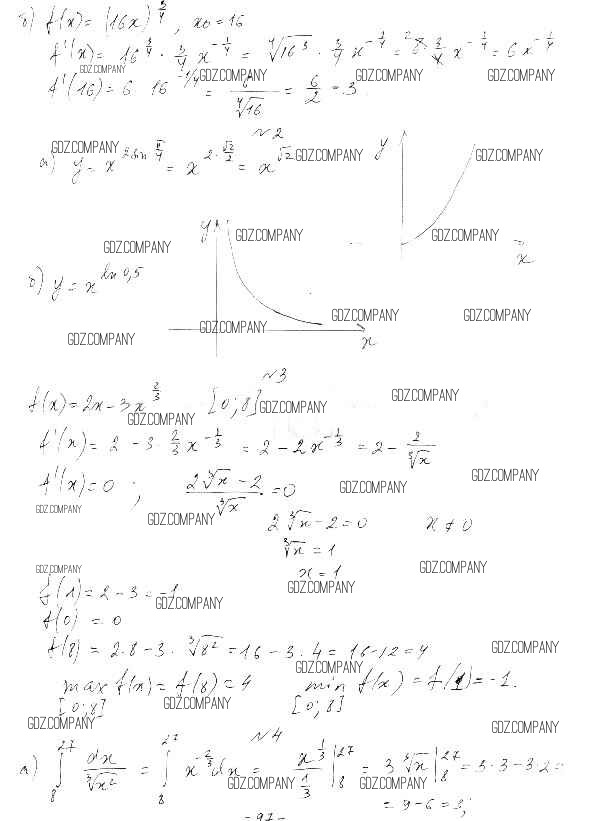 б) f(x) = (16x)^{3/4}, x₀ = 16
f'(x) = 16^{3/4} · 3/4 x^{-1/4} = ⁴√16³ · 3/4 x^{-1/4} = 8 · 3/4 x^{-1/4} = 6x^{-1/4}
GDZ.COMPANY GDZ.COMPANY GDZ.COMPANY GDZ.COMPANY
f'(16) = 6 · 16^{-1/4} = 6/⁴√16 = 6/2 = 3.
№2
GDZ.COMPANY GDZ.COMPANY GDZ.COMPANY
а) y = x^{2 sin π/4} = x^{2 · √2/2} = x^{√2}
y
x
GDZ.COMPANY GDZ.COMPANY GDZ.COMPANY
б) y = x^{ln 0,5}
y
x
GDZ.COMPANY GDZ.COMPANY GDZ.COMPANY GDZ.COMPANY
№3
f(x) = 2x - 3x^{2/3} [0; 8]
GDZ.COMPANY GDZ.COMPANY GDZ.COMPANY
f'(x) = 2 - 3 · 2/3 x^{-1/3} = 2 - 2x^{-1/3} = 2 - 2/∛x
f'(x) = 0; (2∛x - 2)/∛x = 0
GDZ.COMPANY GDZ.COMPANY GDZ.COMPANY GDZ.COMPANY
2∛x - 2 = 0 x ≠ 0
∛x = 1
x = 1
GDZ.COMPANY GDZ.COMPANY GDZ.COMPANY
f(1) = 2 - 3 = -1
GDZ.COMPANY
f(0) = 0
f(8) = 2 · 8 - 3 · ∛8² = 16 - 3 · 4 = 16 - 12 = 4
GDZ.COMPANY GDZ.COMPANY
max f(x) = f(8) = 4 min f(x) = f(1) = -1.
[0; 8] [0; 8]
GDZ.COMPANY GDZ.COMPANY GDZ.COMPANY
№4
а) ∫₈²⁷ dx/∛x² = ∫₈²⁷ x^{-2/3} dx = x^{1/3}/(1/3) |₈²⁷ = 3∛x |₈²⁷ = 3 · 3 - 3 · 2 =
GDZ.COMPANY GDZ.COMPANY
= 9 - 6 = 3;
- 97 -